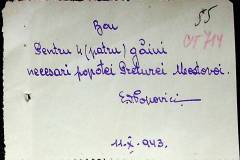 Bon
55
CT 714
Pentru 4 (patru) găini
necesari popotei Preturei Mostovoi.
E. Popovici
11.X.943.